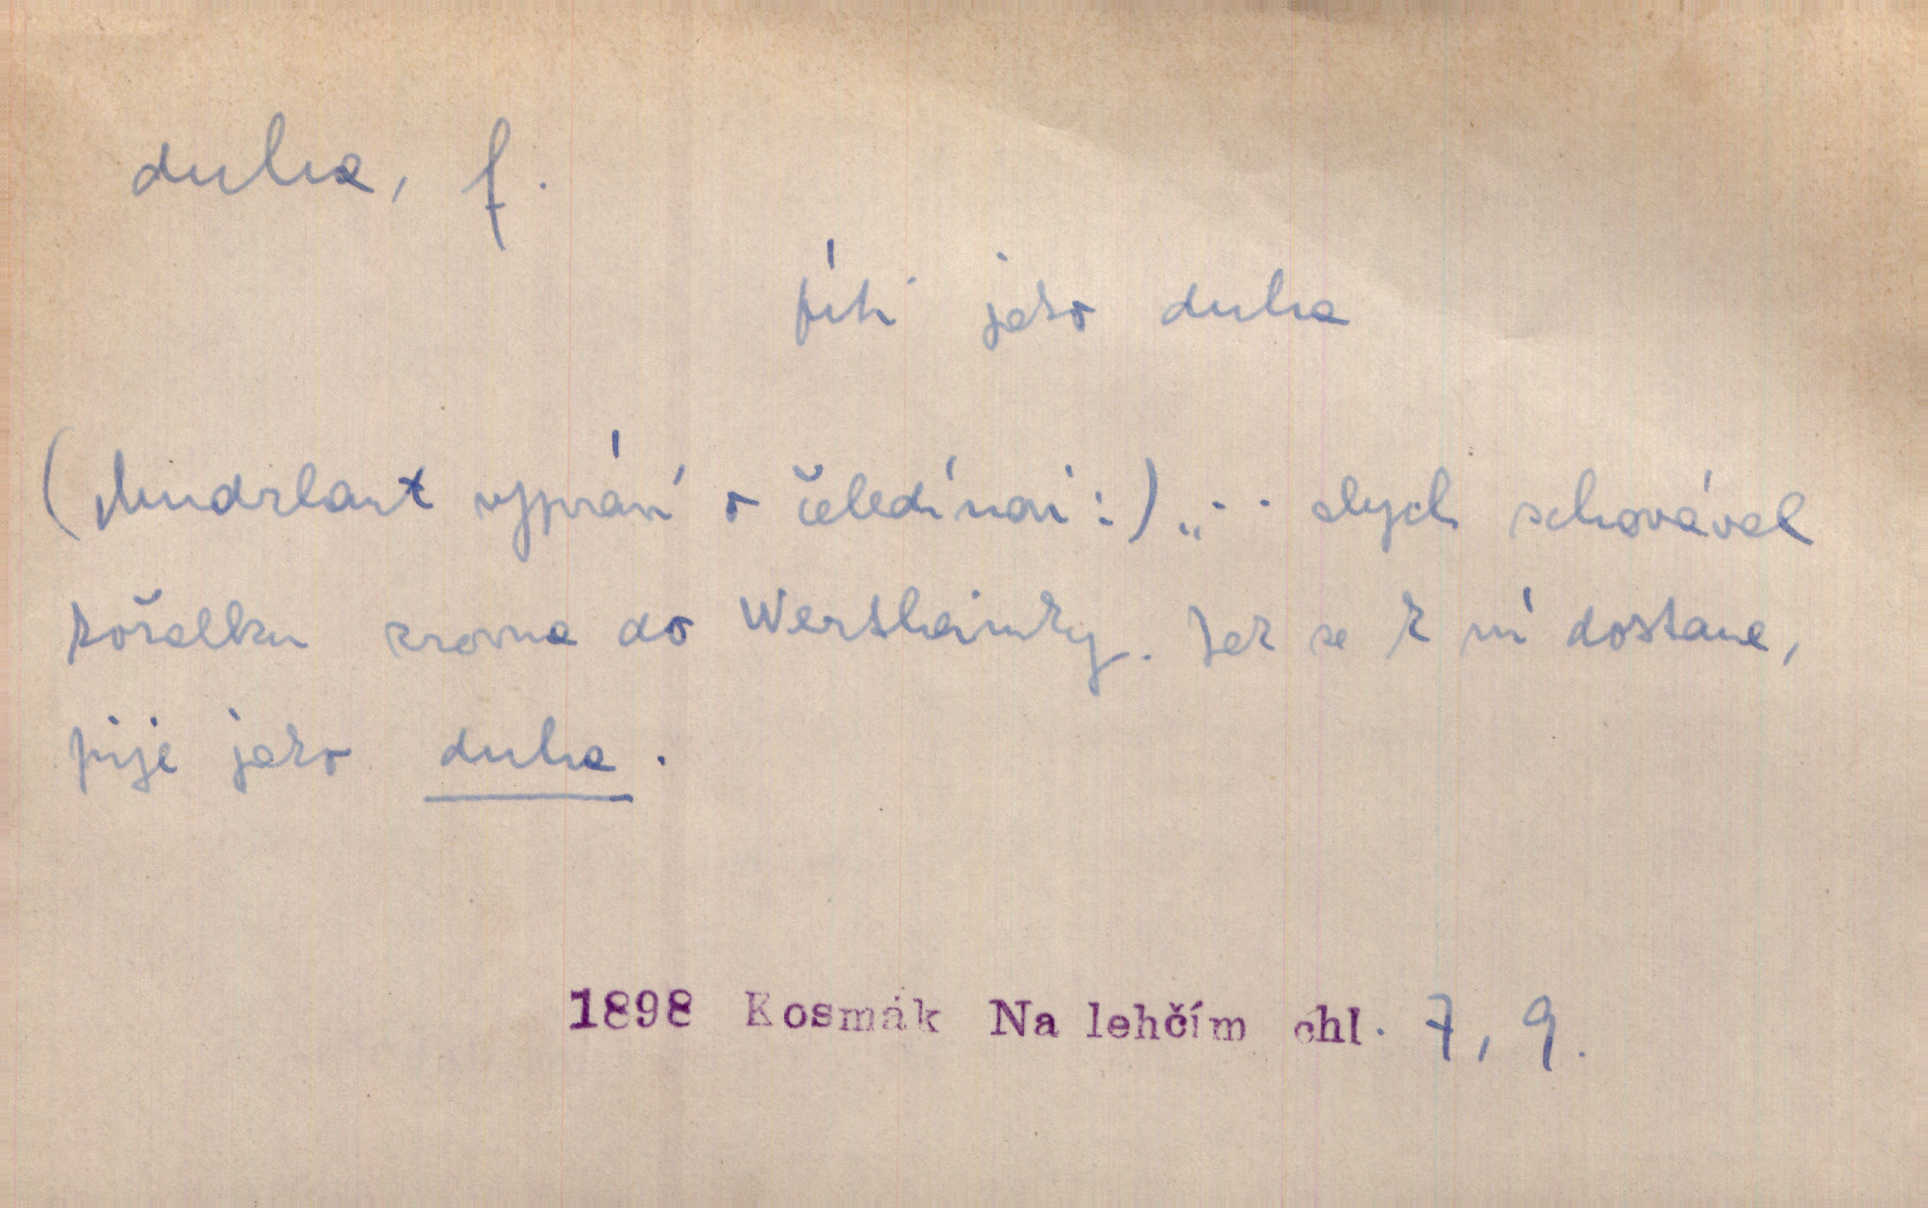 duha, f.
píti jako duha
(Mudrlant vypráví o čeledínovi:) „.. abych schovával
kořalku zrovna do Wertheimky. Jak se k ní dostane,
pije jako duha.
1898 Kosmák Na lehčím chl. 7, 9.